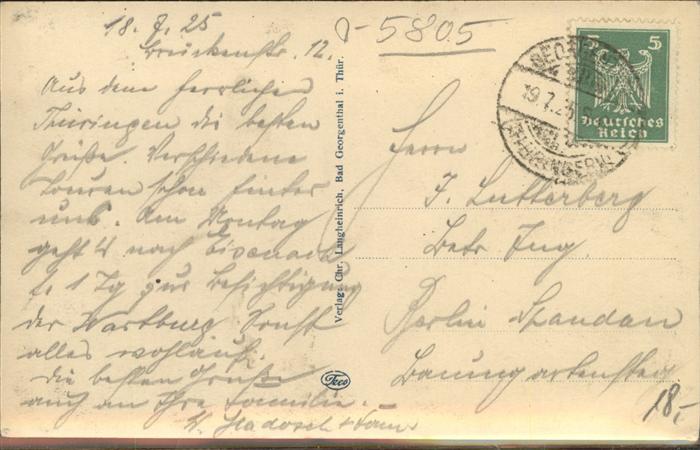 18. 7. 25
Brückenstr. 12.
Aus dem herrlichen
Thüringen die besten
Grüße. Verschiedene
Touren schon hinter
uns. Am Montag
geht's nach Eisenach
f. 1 Tg zur Besichtigung
der Wartburg. Sonst
alles wohlauf.
Die besten Grüße
auch an Ihre Familie.
Verlag: Chr. Langheinrich, Bad Georgenthal i. Thür.
Teco
5805
5 5
Deutsches
Reich
19.7.25
(THÜRINGERW.)
Herrn
J. Lutterberg
Betr. Ing.
Berlin Spandau
18,-